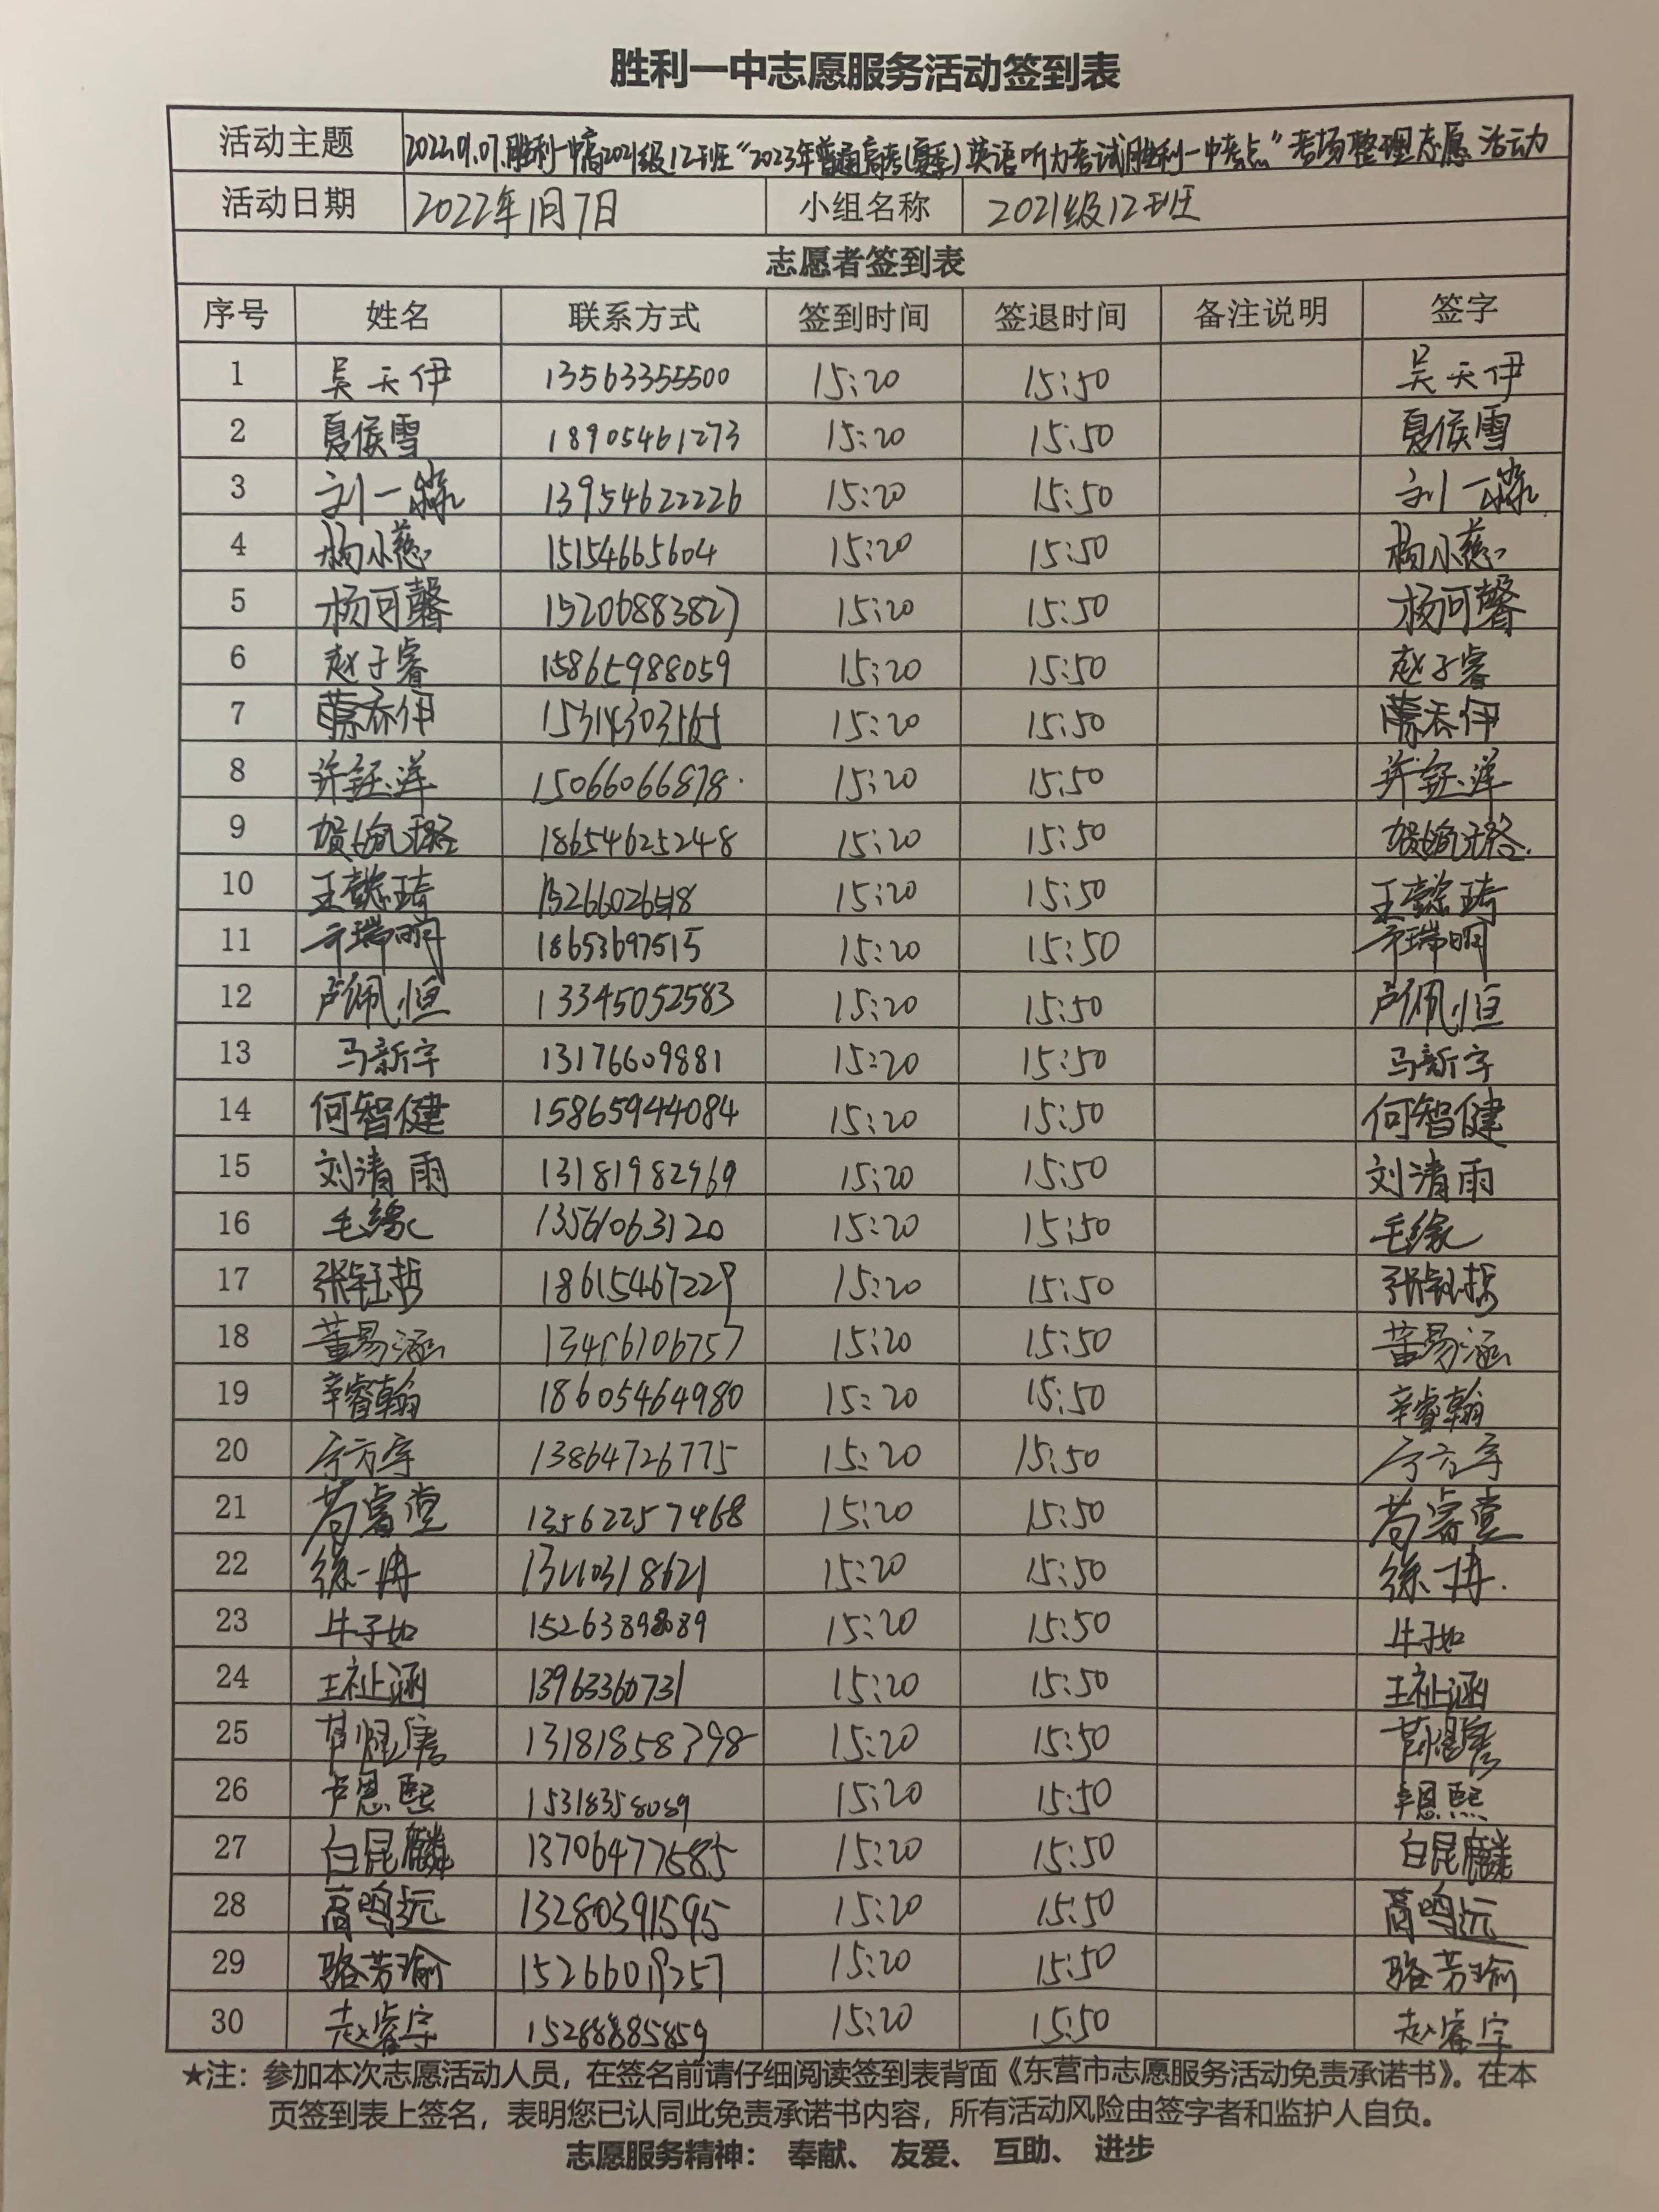 胜利一中志愿服务活动签到表
活动主题 2022.01.07.胜利一中高2021级12班“2023年普通高考(夏季)英语听力考试胜利一中考点”考场整理志愿活动
活动日期 2022年1月7日 小组名称 2021级12班
志愿者签到表
序号 姓名 联系方式 签到时间 签退时间 备注说明 签字
1 吴天伊 13563355500 15:20 15:50 吴天伊
2 夏侯雪 18905461273 15:20 15:50 夏侯雪
3 刘一霖 13954622226 15:20 15:50 刘一霖
4 杨小慈 15154665604 15:20 15:50 杨小慈
5 杨可馨 15206883827 15:20 15:50 杨可馨
6 赵子睿 15865988059 15:20 15:50 赵子睿
7 15:20 15:50
8 许钰洋 15066066878 15:20 15:50 许钰洋
9 18654625248 15:20 15:50
10 王懿琦 15:20 15:50 王懿琦
11 18653697515 15:20 15:50
12 卢佩恒 13345052583 15:20 15:50 卢佩恒
13 马新宇 13176609881 15:20 15:50 马新宇
14 何智健 15865944084 15:20 15:50 何智健
15 刘清雨 13181982969 15:20 15:50 刘清雨
16 毛缘 13561063120 15:20 15:50 毛缘
17 张钰哲 18615467229 15:20 15:50 张钰哲
18 董易涵 15:20 15:50 董易涵
19 辛睿翰 18605464980 15:20 15:50 辛睿翰
20 13864726775 15:20 15:50
21 13562257468 15:20 15:50
22 徐一冉 15:20 15:50 徐一冉
23 牛子如 15263898689 15:20 15:50 牛子如
24 王祉涵 13963360731 15:20 15:50 王祉涵
25 13181858398 15:20 15:50
26 15318358089 15:20 15:50
27 白昆麟 13706477685 15:20 15:50 白昆麟
28 高鸣远 13280391595 15:20 15:50 高鸣远
29 骆芳瑜 15266019257 15:20 15:50 骆芳瑜
30 赵睿宇 15288885859 15:20 15:50 赵睿宇
★注：参加本次志愿活动人员，在签名前请仔细阅读签到表背面《东营市志愿服务活动免责承诺书》。在本
页签到表上签名，表明您已认同此免责承诺书内容，所有活动风险由签字者和监护人自负。
志愿服务精神： 奉献、 友爱、 互助、 进步